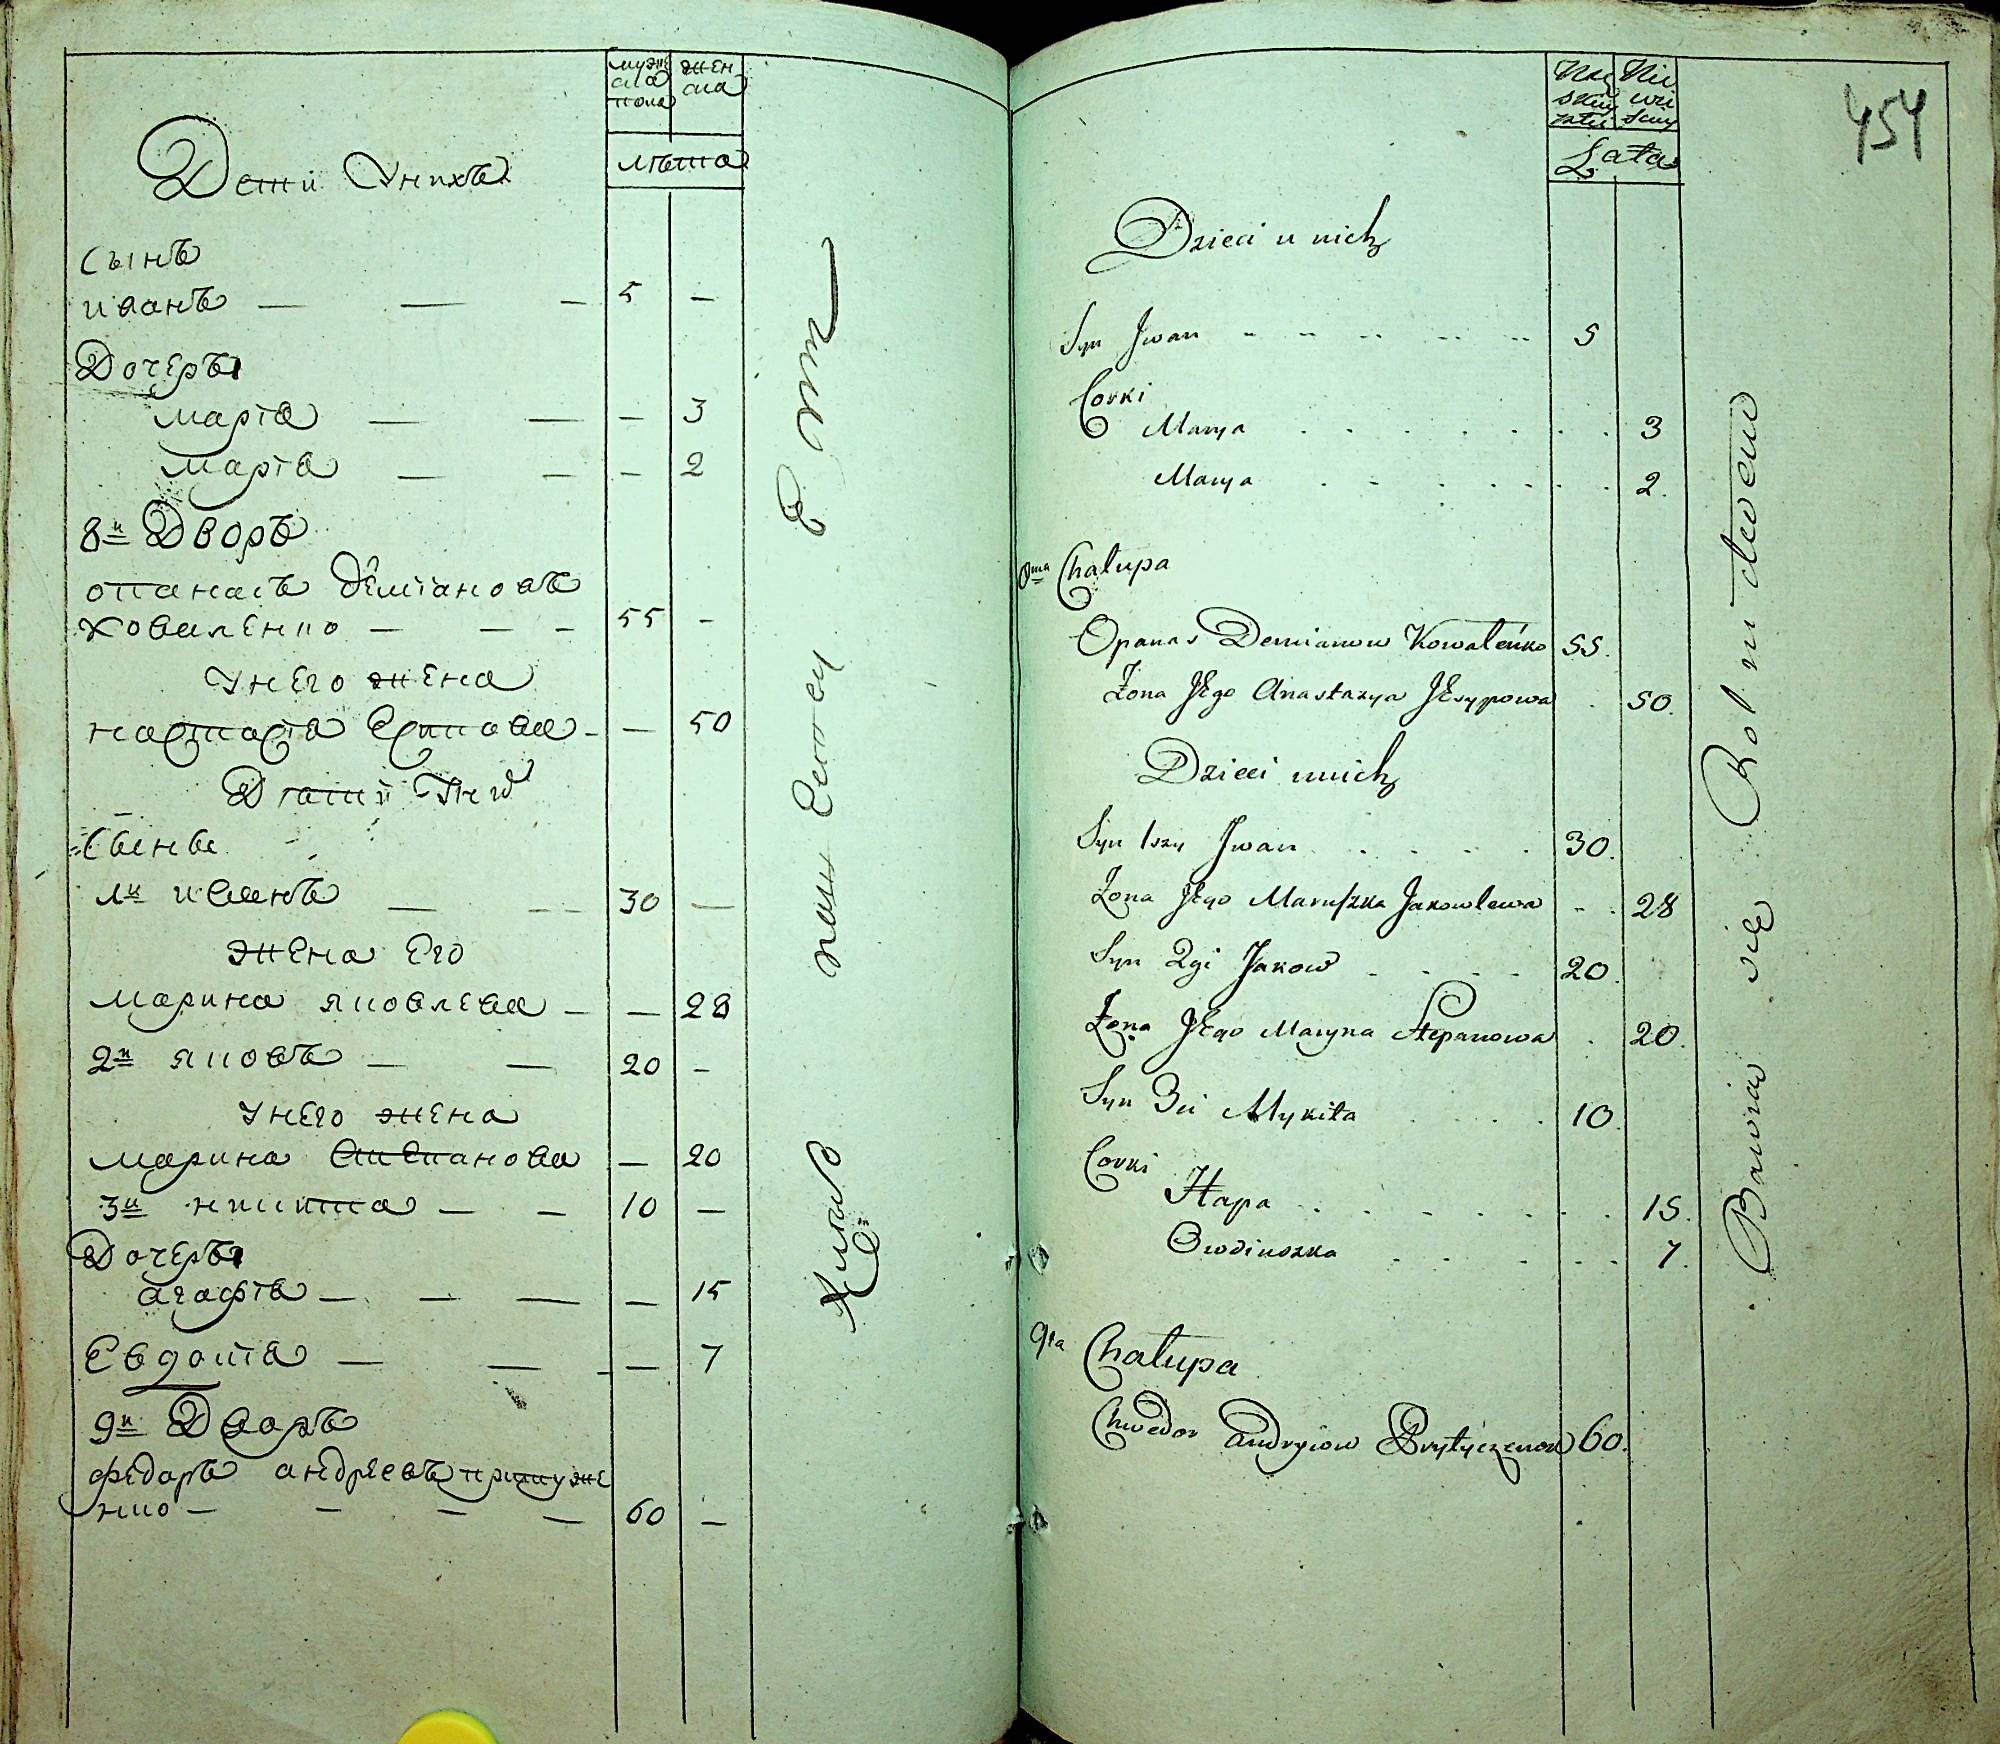 мужеска пола
женска
лѣта
Дети Унихъ
Сынъ
иванъ — — — 5 —
Дочеры
Марїа — — — 3
Марїа — — — 2
8й Дворъ
опанасъ демїановъ
коваленко — — — 55 —
Унего жена
настасїа Есипова — — 50
Дѣти Уних
Сыны
1й иванъ — — 30 —
жена Его
марина яковлева — — 28
2й яковъ — — 20 —
Унего жена
марина Степанова — 20
3й никита — — 10 —
Дочеры
агафїа — — — — 15
Евдокїа — — — — 7
9й Дворъ
федоръ андреевъ притуже
нко — — — — 60 —
Męzkiey
Niewieściey
Lata
454
Dzieci u nich
Syn Jwan 5
Corki
Marya 3
Marya 2.
8ma Chalupa
Opanas Demianow Kowalenko 55.
Żona JEgo Anastazya JEsypowa 50.
Dzieci unich
Syn 1szy Jwan 30.
Żona JEgo Maruszka Jakowlewa 28
Syn 2gi Jakow 20.
Żona JEgo Maryna Stepanowa 20.
Syn 3ci Mykita 10.
Corki
Hapa 15.
Owdiuszka 7.
9ta Chalupa
Chwedor Andryiow 60.
Bawią się Rolnictwem